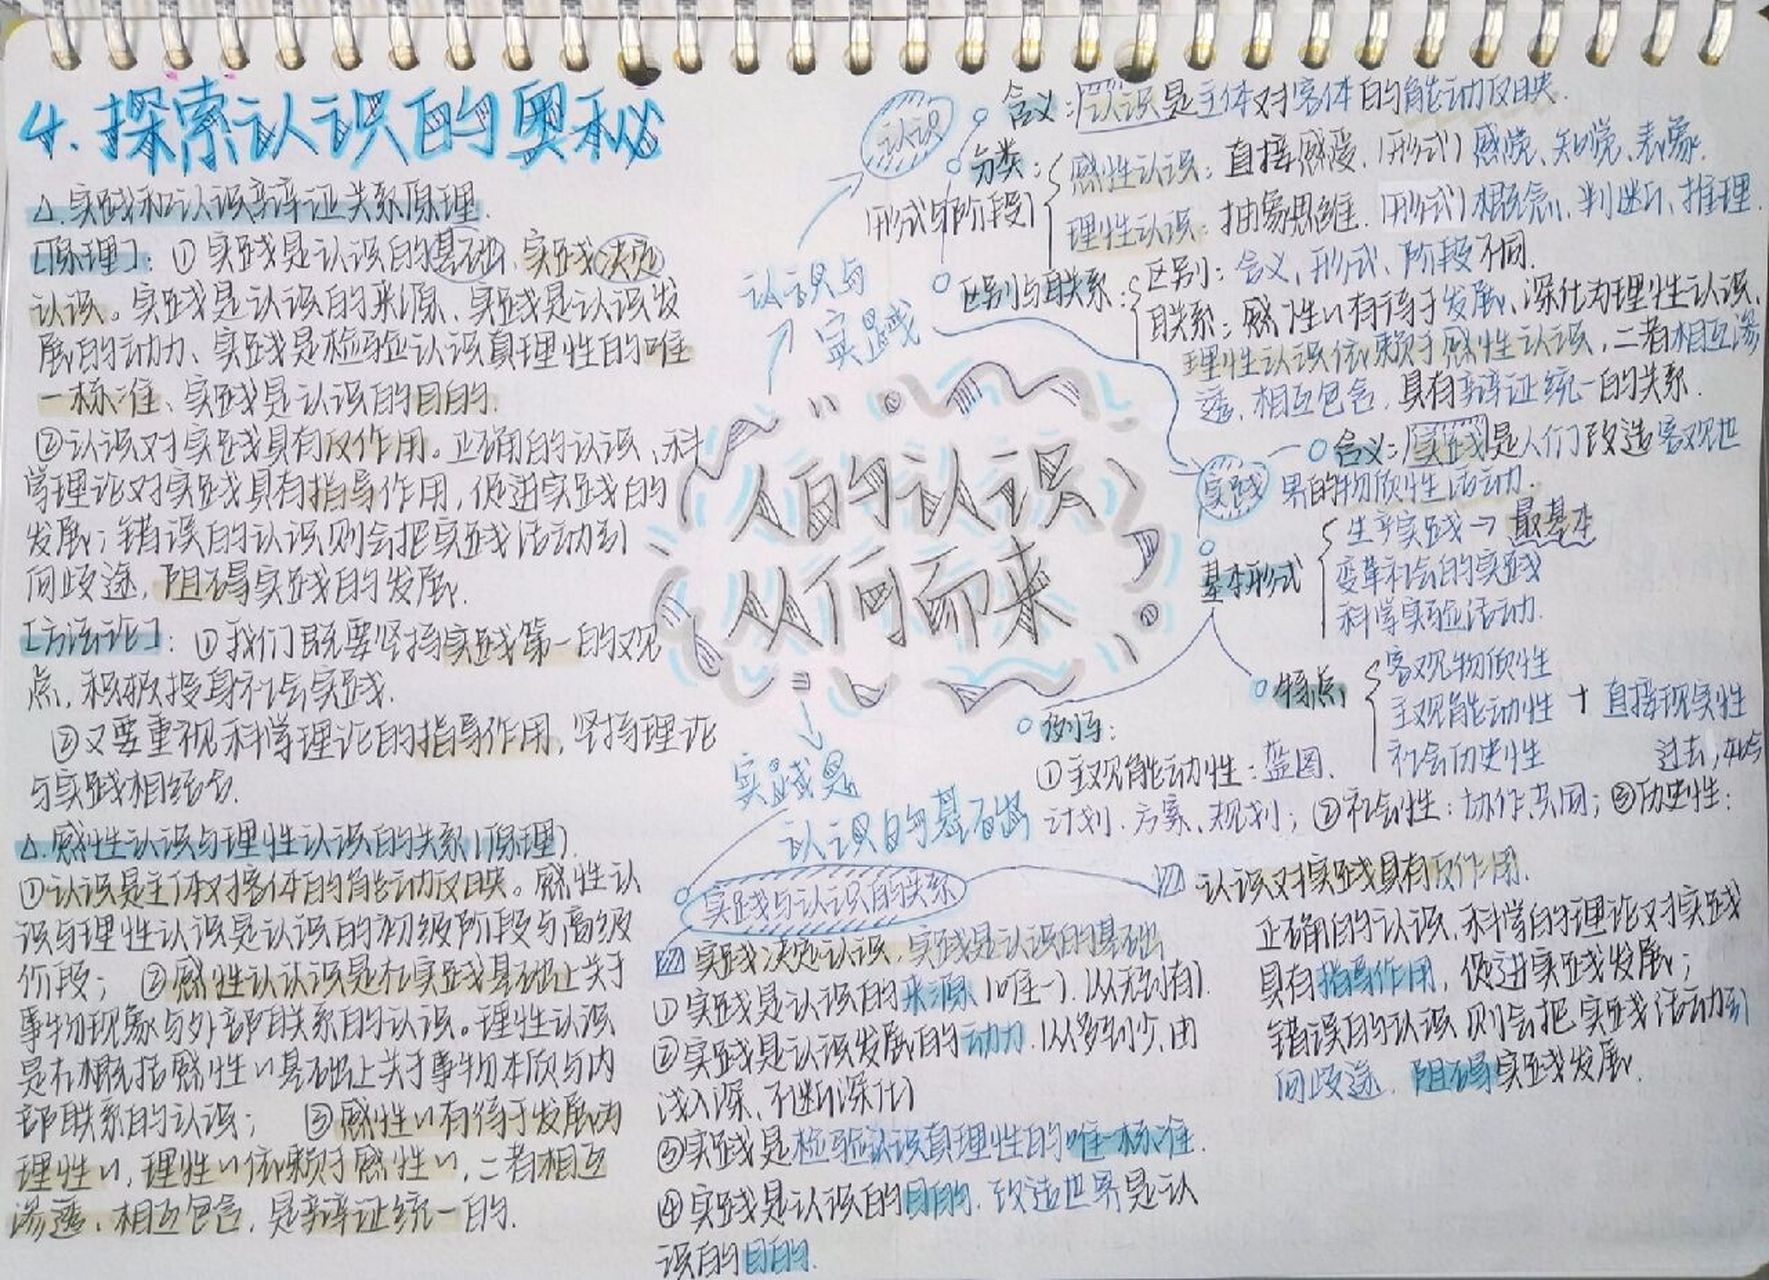 4.探索认识的奥秘
△.实践和认识辩证关系原理.
[原理]：①实践是认识的基础、实践决定
认识。实践是认识的来源、实践是认识发
展的动力、实践是检验认识真理性的唯
一标准、实践是认识的目的.
②认识对实践具有反作用。正确的认识、科
学理论对实践具有指导作用，促进实践的
发展；错误的认识则会把实践活动引
向歧途，阻碍实践的发展.
[方法论]：①我们既要坚持实践第一的观
点，积极投身社会实践.
②又要重视科学理论的指导作用，坚持理论
与实践相结合.
△.感性认识与理性认识的关系(原理).
①认识是主体对客体的能动反映。感性认
识与理性认识是认识的初级阶段与高级
阶段；②感性认认识是在实践基础上关于
事物现象与外部联系的认识。理性认识
是在概括感性〃基础上关于事物本质与内
部联系的认识；③感性〃有待于发展为
理性〃，理性〃依赖于感性〃，二者相互
渗透、相互包含，是辩证统一的.
人的认识
从何而来
认识与
实践
认识
含义：认识是主体对客体的能动反映.
分类：
(形式与阶段)
感性认识：直接感受、(形式)感觉、知觉、表象.
理性认识：抽象思维.(形式)概念、判断、推理.
区别与联系：
区别：含义、形式、阶段不同.
联系：感性〃有待于发展、深化为理性认识、
理性认识依赖于感性认识，二者相互渗
透、相互包含，具有辩证统一的关系.
实践
含义：实践是人们改造客观世
界的物质性活动.
基本形式
生产实践→最基本
变革社会的实践
科学实验活动.
特点
客观物质性
主观能动性 + 直接现实性
社会历史性
例子：
①主观能动性：蓝图、
计划、方案、规划；②社会性：协作共同；③历史性：
过去，如今
实践是
认识的基础
实践与认识的关系
实践决定认识，实践是认识的基础
①实践是认识的来源(唯一).(从无到有).
②实践是认识发展的动力.(从多到少、由
浅入深、不断深化)
③实践是检验认识真理性的唯一标准.
④实践是认识的目的.改造世界是认
识的目的.
认识对实践具有反作用.
正确的认识、科学的理论对实践
具有指导作用，促进实践发展；
错误的认识则会把实践活动引
向歧途.阻碍实践发展.